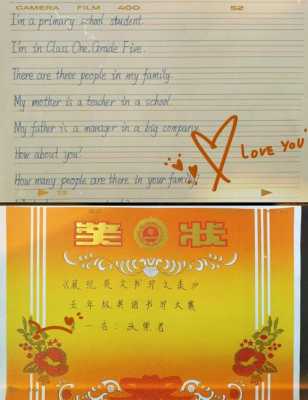 CAMERA FILM 400 52
I'm a primary school student.
I'm in Class One, Grade Five.
There are three people in my family.
My mother is a teacher in a school.
My father is a manager in a big company.
How about you?
How many people are there in your family?
LOVE YOU
奖 状
英文书写
五年级英语书写大赛
一名: